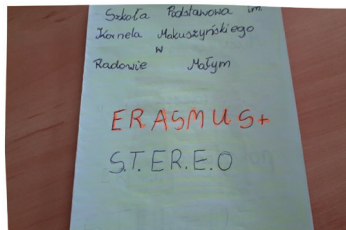 Szkoła Podstawowa im
Kornela Makuszyńskiego
w
Radowie Małym
ERASMUS+
S.T.E.R.E.O